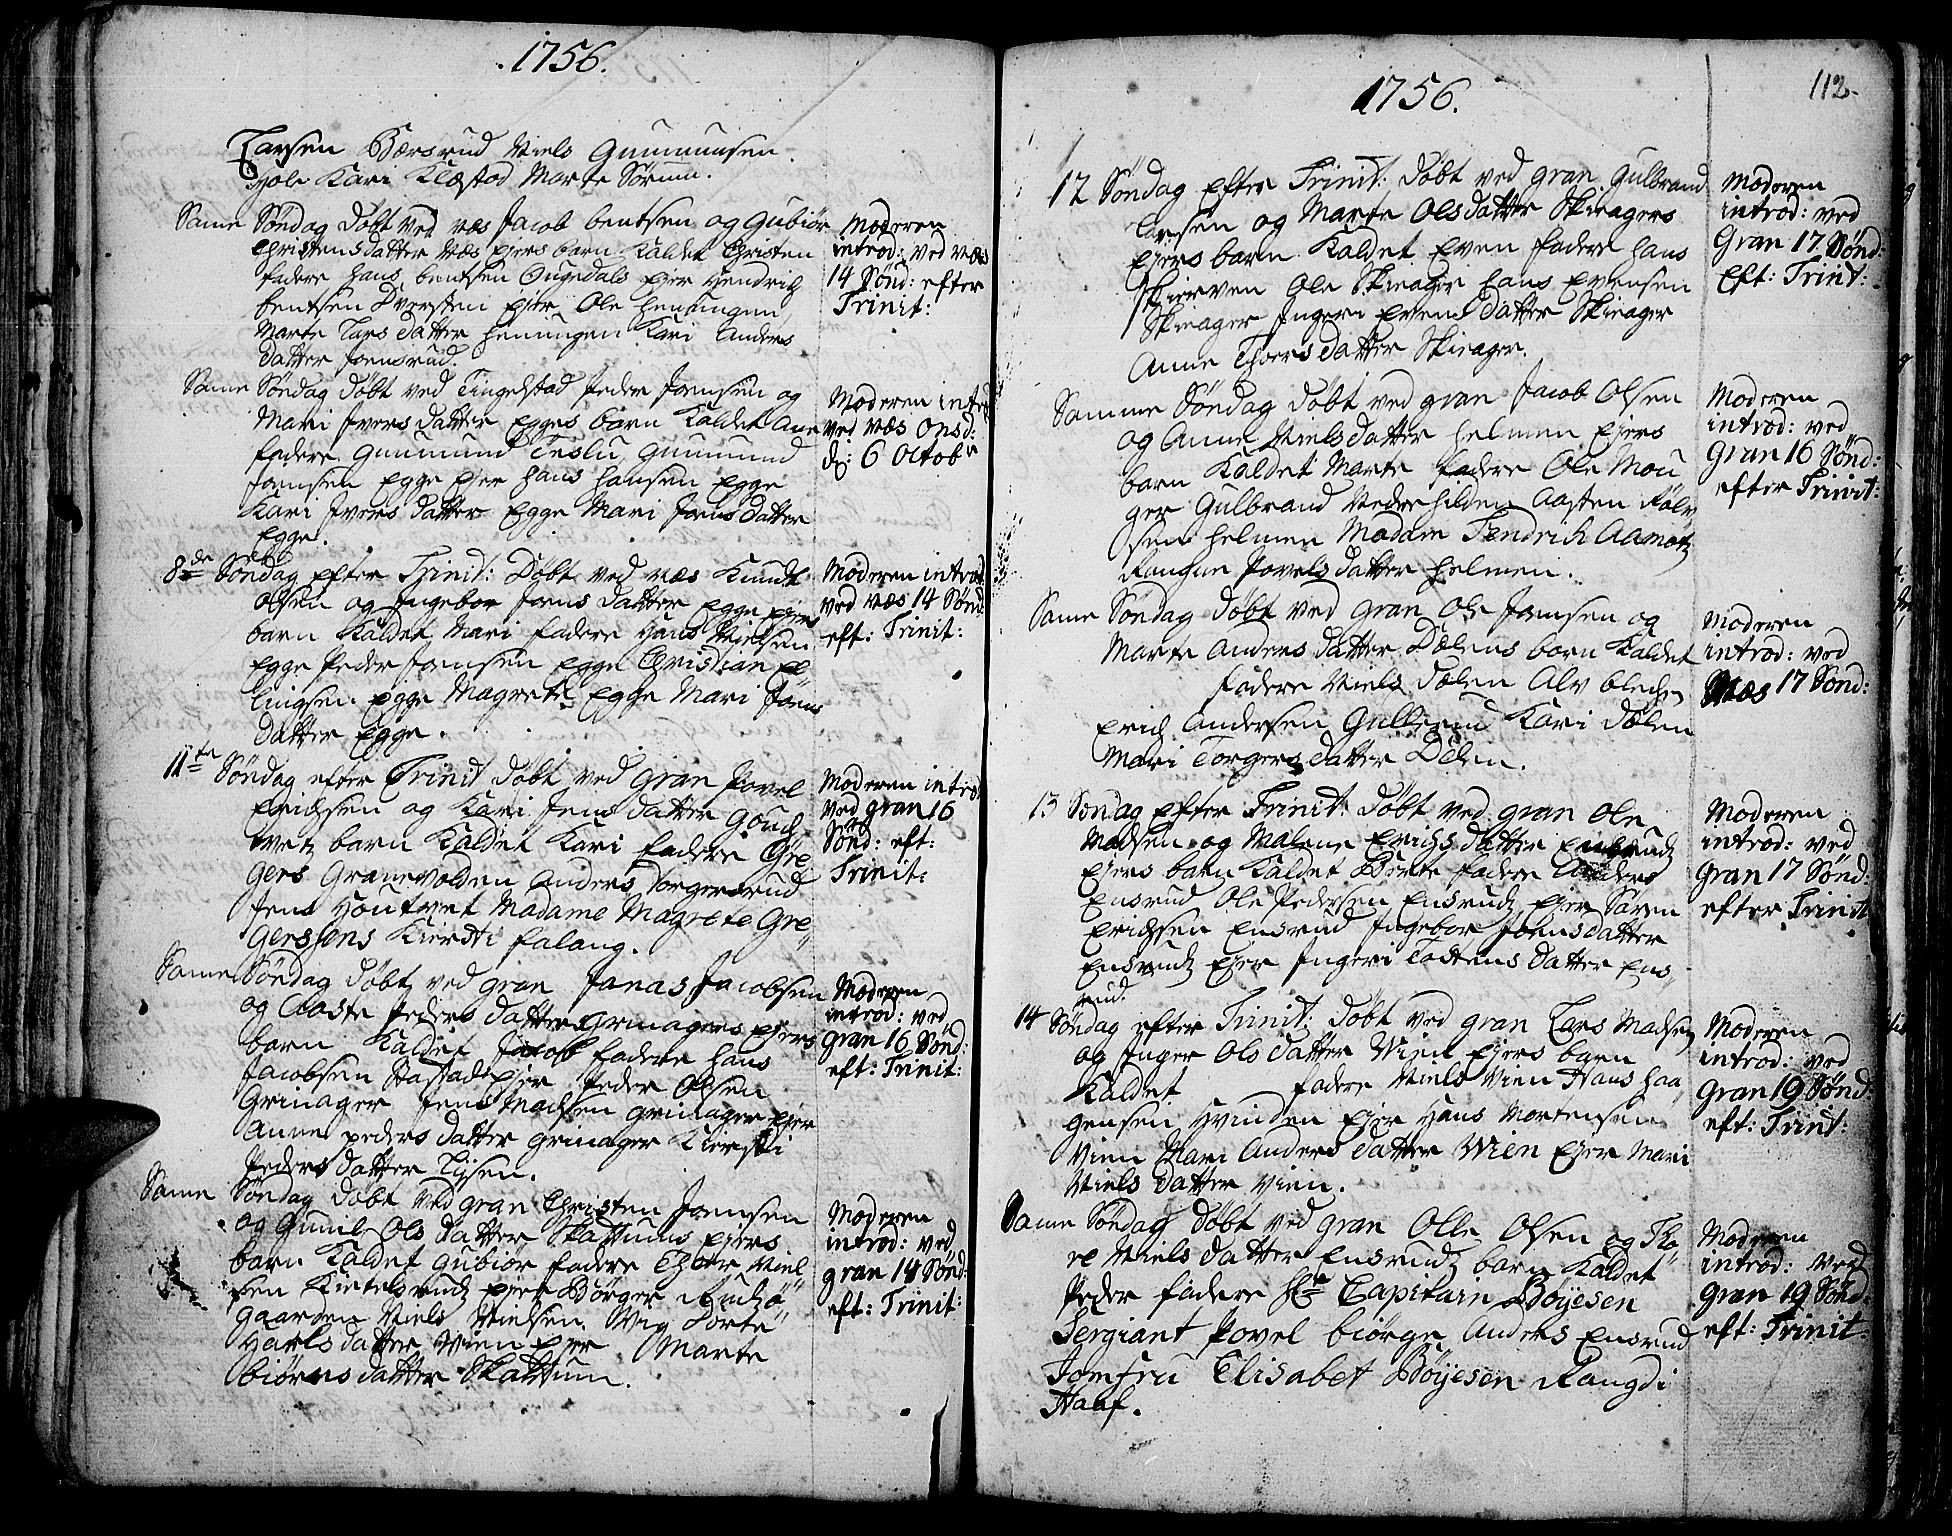 1756.
Larsen Bærsrud Niels Gummunsen
Hole Kari Klæstad Marte Sørum.
Same Søndag døbt ved næs Jacob bentsen og Gubiør
Christensdatter næs ejers barn Kaldet Christen
fadere hans bentsen Ougedals ejer Hendrich
bentsen Dversten ejer Ole henningen
Marte Lars datter henningen Kari Anders
datter Joensrud.
Moderen
introd: ved næs
14 Sønd: efter
Trinit:
Same Søndag døbt ved Tingelstad Peder Joensen og
Mari Jvers datter Egges barn Kaldet Ane
fadere Gunmund Teslu, Gunmund
Joensen Egge ejer hans hansen Egge
Kari Jvers datter Egge Mari Joens datter
Egge.
Moderen introd
ved næs Onsd:
d: 6 Octobr
8de Søndag efter Trinit: Døbt ved næs Knudt
Olsen og Ingebor Joens datter Egge ejers
barn Kaldet Mari fadere Hans Nielsen
Egge Peder Joensen Egge Christian El
lingsen Egge Magrete Egge Mari Joens
datter Egge.
Moderen introd
ved næs 14 Sønd
eft: Trinit:
11te Søndag efter Trinit døbt ved Gran Povel
Erichsen og Kari Jens datter Gouch
barn Kaldet Kari fadere Gre
gers Granevolden Anders Torgersrud
Jens Hontvet Madame Magrete Gre
gersens Kiersti falang.
Moderen introd
ved gran 16
Sønd: eft:
Trinit:
Same Søndag døbt ved gran Jonas Jacobsen
og Aaste Peders datter Grinagers ejers
barn Kaldet Jacob fadere hans
Jacobsen Stastads ejer Peder Olsen
Grinager Jens Madsen grinager ejer
Anne peders datter grinager Kiersti
Peders datter Lysen.
Moderen
introd: ved
gran 16 Sønd:
eft: Trinit:
Same Søndag døbt ved gran Christen Joensen
og Gunil Ols datter Skattums ejers
barn Kaldet Gubiør fadere Thor Niel
sen Kietelsrud ejer Børger
gaarden Niels Nielsen Wig Dorte
Harls datter Wien ejer Marte
biørns datter Skattum.
Moderen
introd: ved
gran 14 Sønd:
eft: Trinit:
1756.
112.
12 Søndag efter Trinit: døbt ved gran Gulbrand
Larsen og Marte Olsdatter Skieagers
Ejers barn Kaldet Even fadere hans
Skierven Ole Skieager hans Evensen
Skieager Ingeri Evens datter Skieager
Anne Thors datter Skieager.
Moderen
introd: ved
Gran 17 Sønd:
Eft: Trint:
Samme Søndag døbt ved gran Jacob Olsen
og Anne Niels datter helmen Ejers
barn Kaldet Marte fadere Ole Mou
ger Gulbrand Nedrehilden Aasten Rolv
sen helmen Madam Fendrich Aamotz
Rangne Povels datter helmen.
Moderen
introd: ved
Gran 16 Sønd:
efter Trinit:
Same Søndag døbt ved gran Ole Joensen og
Marte Anders datter Dølens barn Kaldet
fadere Niels Dølen Alv blechen
Erich Andersen Gullerud Kari Dølen
Mari Torgers datter Dølen.
Moderen
introd: ved
Næs 17 Sønd:
13 Søndag efter Trinit: døbt ved gran Ole
Madsen og Malene Erichs datter Ensrud
Ejers barn Kaldet Berte fadere Anders
Ensrud Ole Pedersen Ensrud Ejer Søren
Erichsen Ensrud Ingebor Joens datter
Ensrud Ejer Ingeri Tostens datter Ens
rud.
Moderen
introd: ved
Gran 17 Sønd:
efter Trinit
14 Søndag efter Trinit: døbt ved gran Lars Madsen
og Inger Ols datter Wien Ejers barn
Kaldet fadere Niels Wien Hans haa
gensen Hvinden Ejer Hans Mortensen
Wien Mari Anders datter Wien Ejer Mari
Niels datter Wien.
Moderen
introd: ved
Gran 19 Sønd:
eft: Trint:
Same Søndag døbt ved gran Olle Olsen og Tho
re Niels datter Ensrud barn Kaldet
Peder fadere Hr Capitain Bøyesen
Sergiant Povel biørge Anders Ensrud
Jomfru Elisabet Bøyesen Rangdi
Haaf.
Moderen
introd: ved
gran 19 Sønd
eft: Trinit: